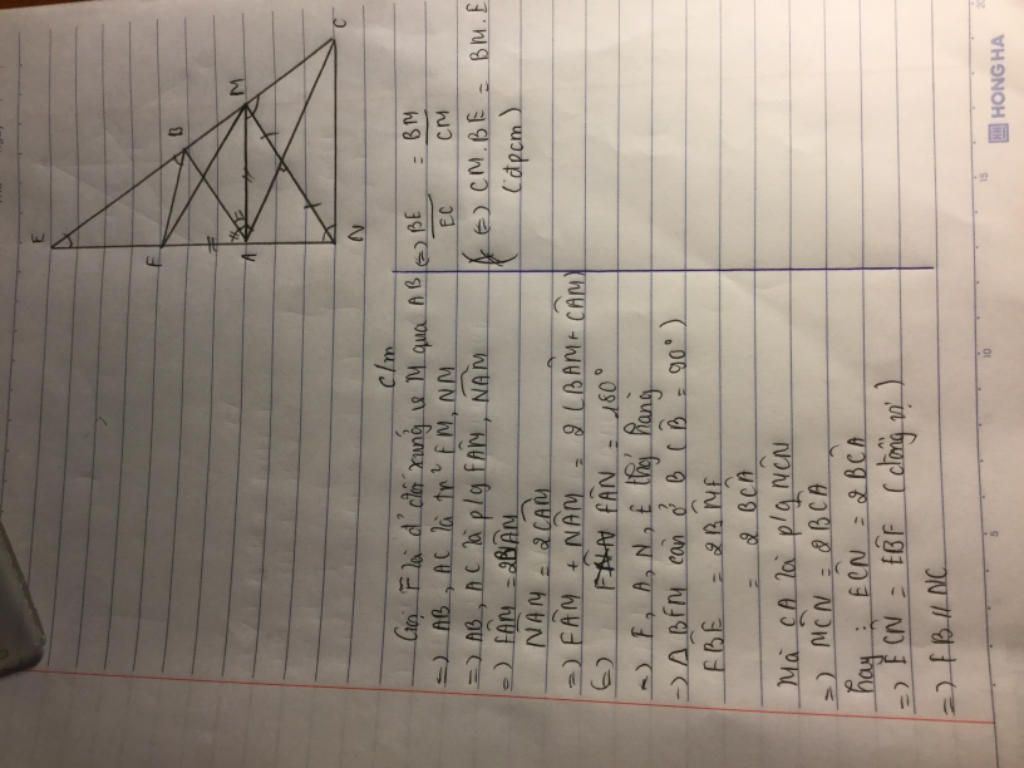 E
F
B
A
M
N
C
c/m
Gọi F là đ' đối xứng vs M qua AB
=) AB, AC là tr² FM, NM
=) AB, AC là p/g FÂM, NÂM
=) FÂM = 2BÂM
NÂM = 2CÂM
=) FÂM + NÂM = 2 (BÂM + CÂM)
(=) FÂN = 180°
=) F, A, N, E thg hàng
=) Δ BFM cân ở B (B̂ = 90°)
FB̂E = 2BM̂F
= 2BĈA
Mà CA là p'g MĈN
=) MĈN = 2BĈA
hay: EĈN = 2BĈA
=) EĈN = EB̂F (đồng vị)
=) FB // NC
(=) BE/EC = BM/CM
(=) CM.BE = BM.E
(đpcm)
HONG HA
5
10
15
20